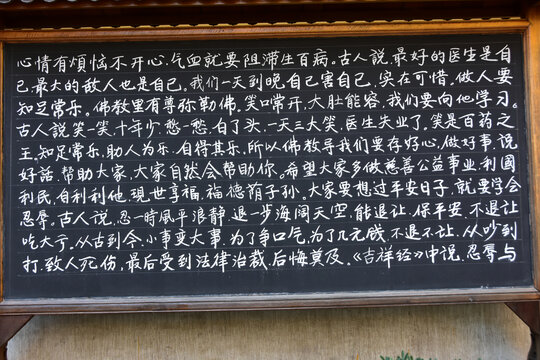 心情有煩惱不开心.气血就要阻滞生百病。古人说.最好的医生是自
己.最大的敌人也是自己。我们一天到晚自己害自己.实在可惜.做人要
知足常乐。佛教里有尊弥勒佛.笑口常开.大肚能容.我们要向他学习。
古人说笑一笑.十年少.愁一愁.白了头.一天三大笑.医生失业了.笑是百药之
王.知足常乐.助人为乐.自得其乐.所以佛教导我们要存好心.做好事.说
好话.帮助大家.大家自然会帮助你。希望大家多做慈善公益事业.利國
利民.自利利他.現世享福.福德荫子孙。大家要想过平安日子.就要学会
忍辱。古人说.忍一時風平浪静.退一步海闊天空.能退让.保平安.不退让
吃大亏.从古到今.小事变大事.为了争口气.为了几元钱.不退不让.从吵到
打.致人死伤.最后受到法律治裁.后悔莫及。《吉祥经》中说.忍辱与